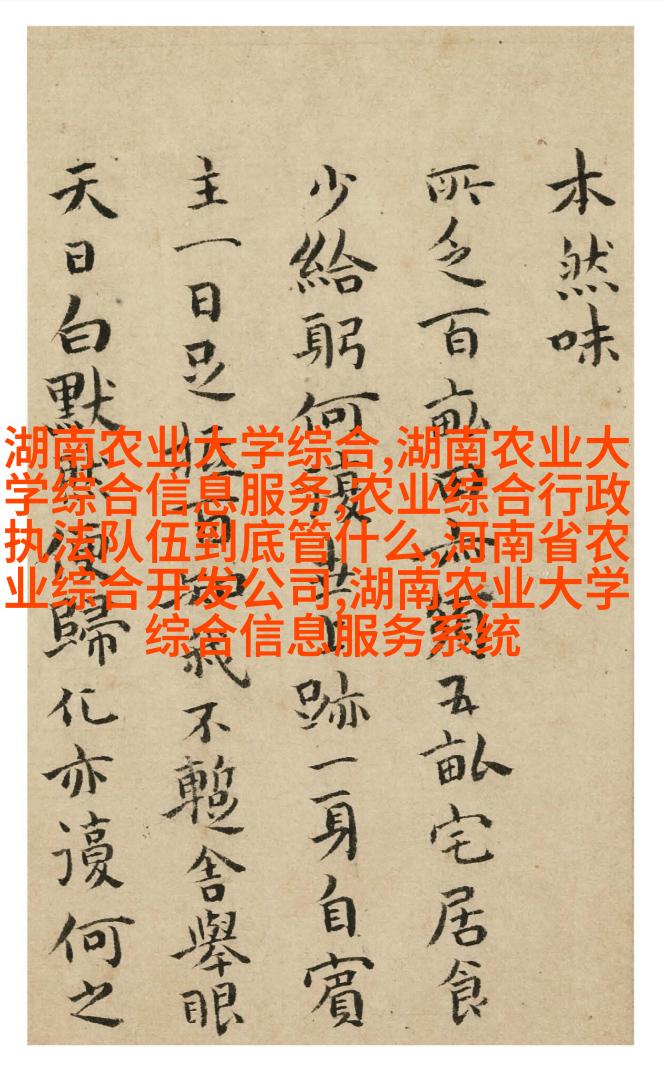 本然味
所乏百畝田無五畝宅居食
少給躬何復跡一身自賓
主一日足不暫舍舉眼
天日白默然便歸化亦復何之
湖南农业大学综合,湖南农业大
学综合信息服务,农业综合行政
执法队伍到底管什么,河南省农
业综合开发公司,湖南农业大学
综合信息服务系统